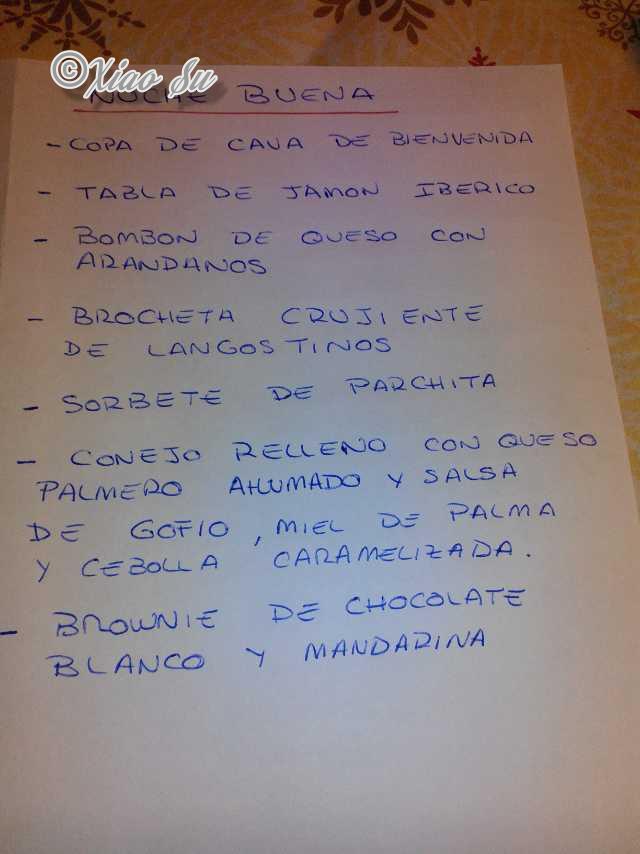 ©Xiao Su
NOCHE BUENA
- COPA DE CAVA DE BIENVENIDA
- TABLA DE JAMON IBERICO
- BOMBON DE QUESO CON
ARANDANOS
- BROCHETA CRUJIENTE
DE LANGOSTINOS
- SORBETE DE PARCHITA
- CONEJO RELLENO CON QUESO
PALMERO AHUMADO Y SALSA
DE GOFIO, MIEL DE PALMA
Y CEBOLLA CARAMELIZADA.
- BROWNIE DE CHOCOLATE
BLANCO Y MANDARINA